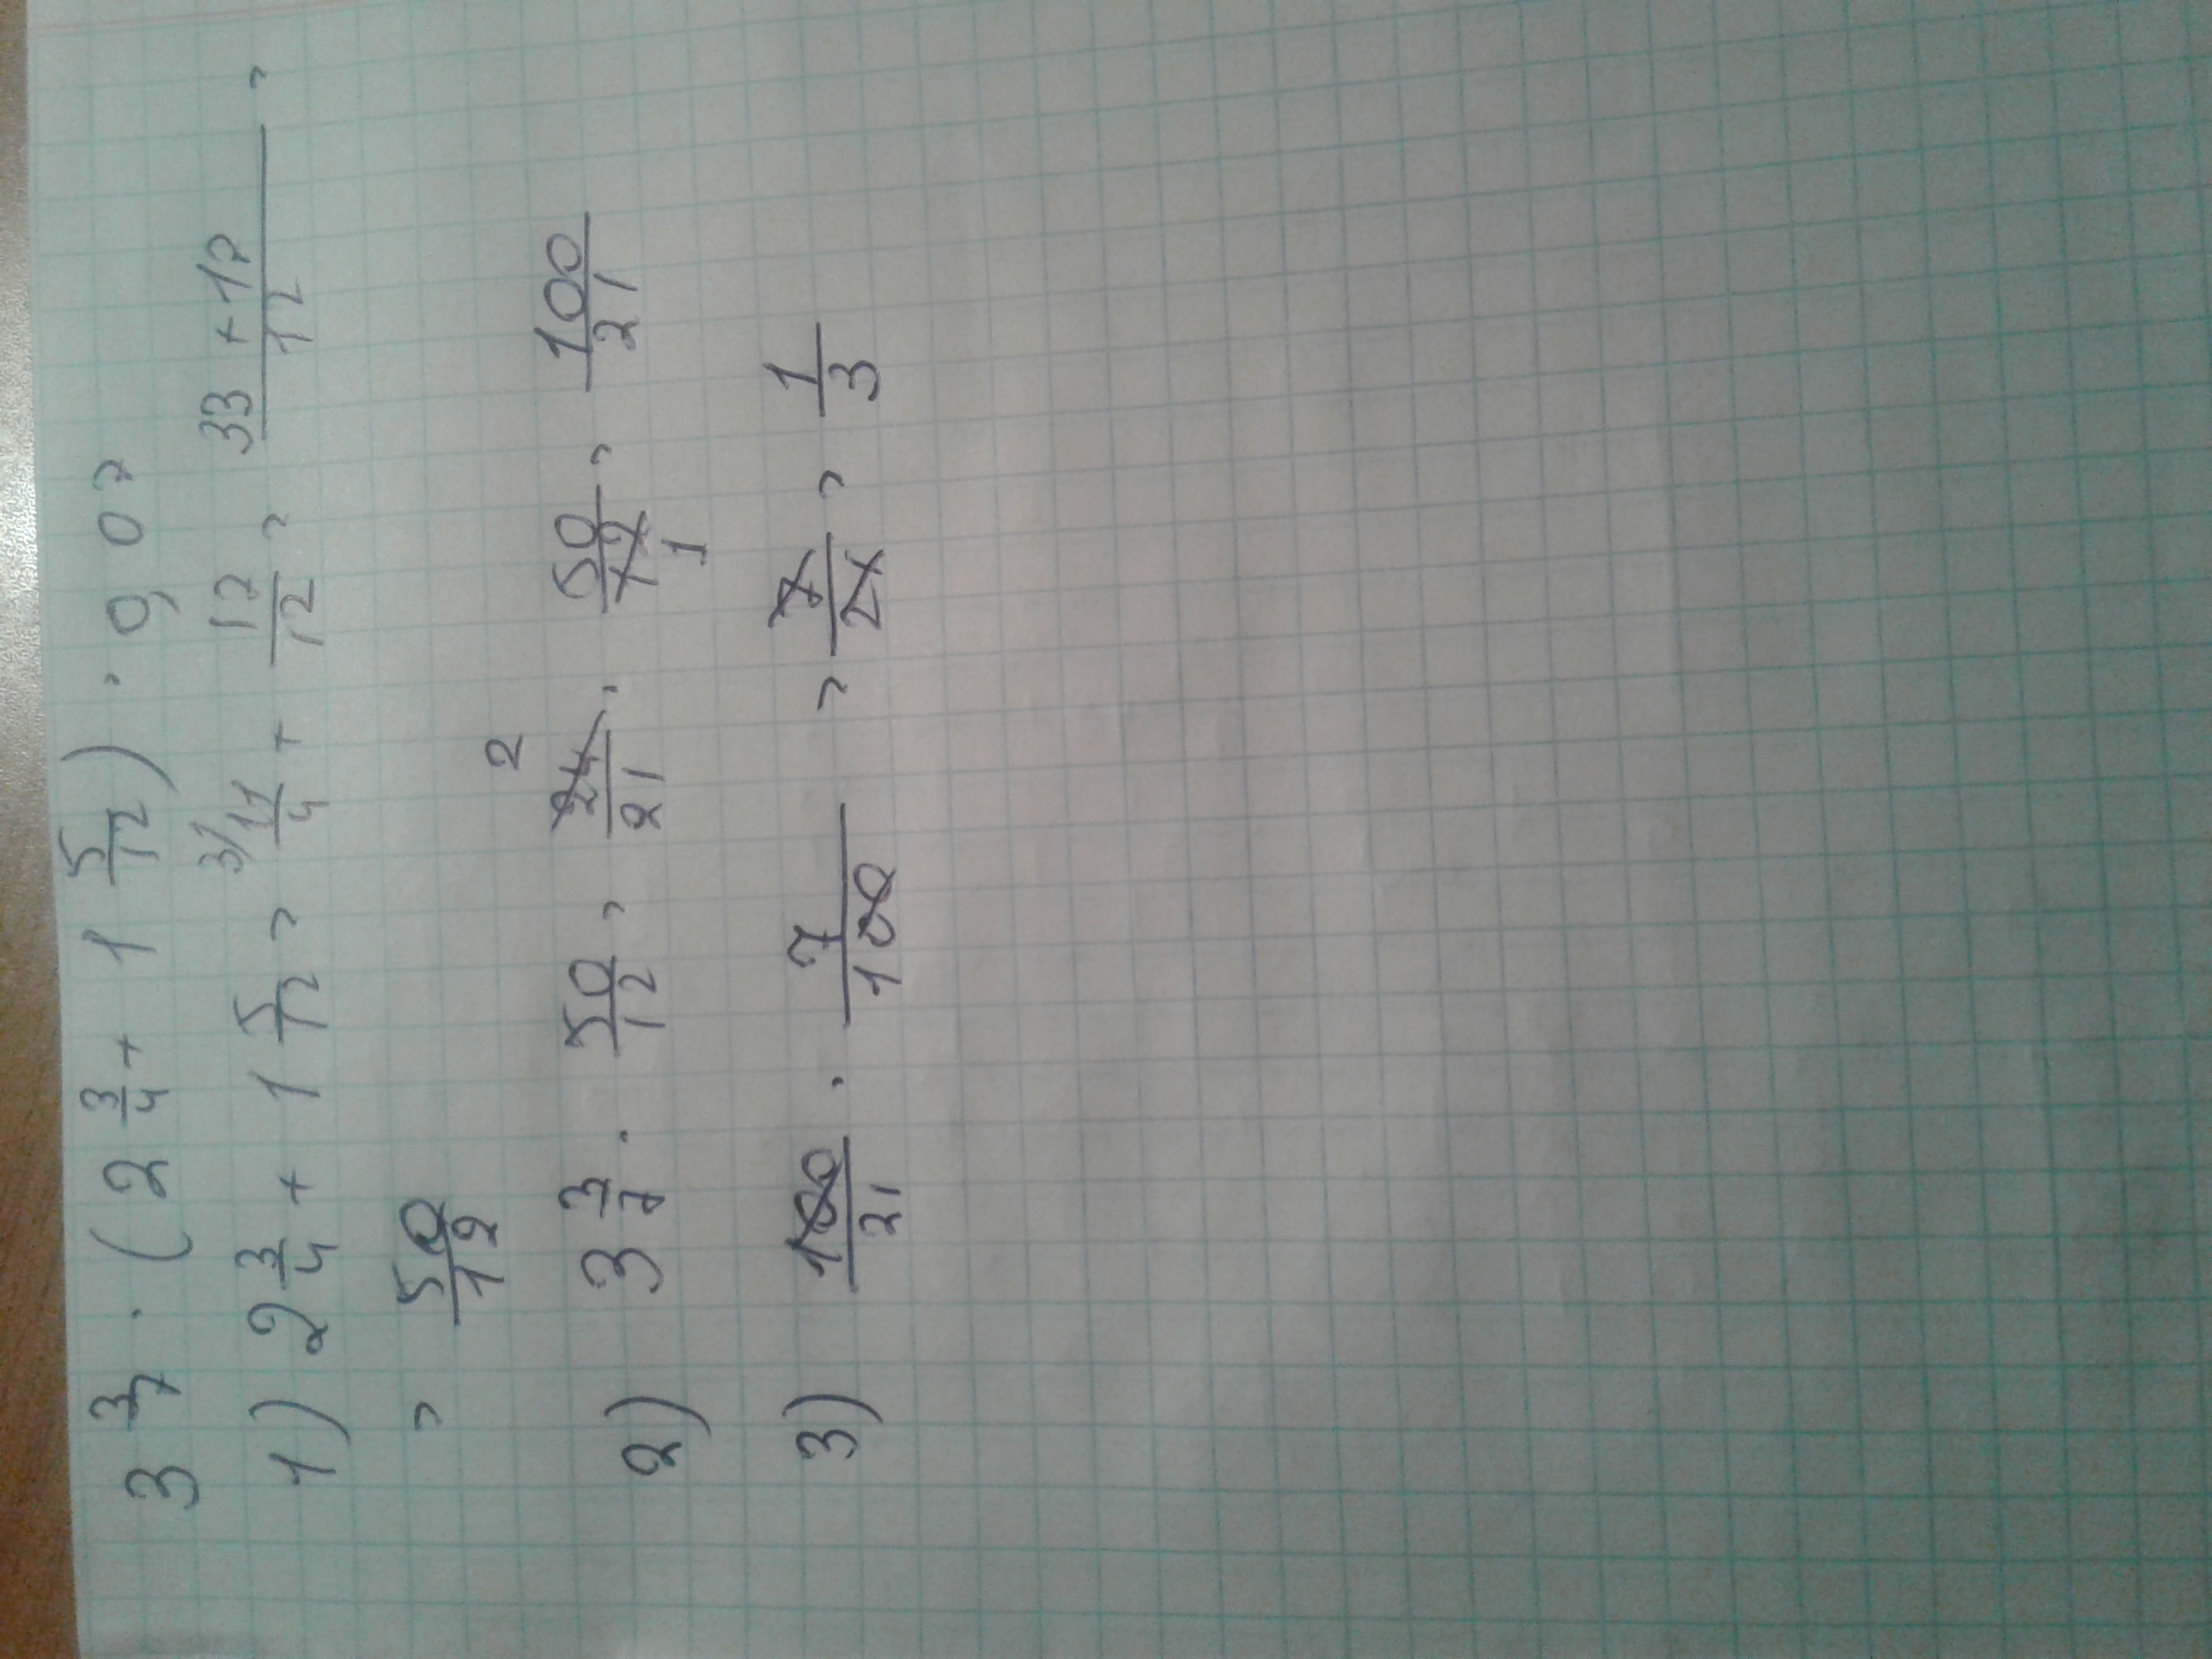 3 3/7 · (2 3/4 + 1 5/12) · 0,07
1) 2 3/4 + 1 5/12 = 3/ 11/4 + 17/12 = (33 + 17)/12 =
= 50/12
2) 3 3/7 · 50/12 = 24/21 · 50/12 = 100/21 2 1
3) 100/21 · 7/100 = 7/21 = 1/3